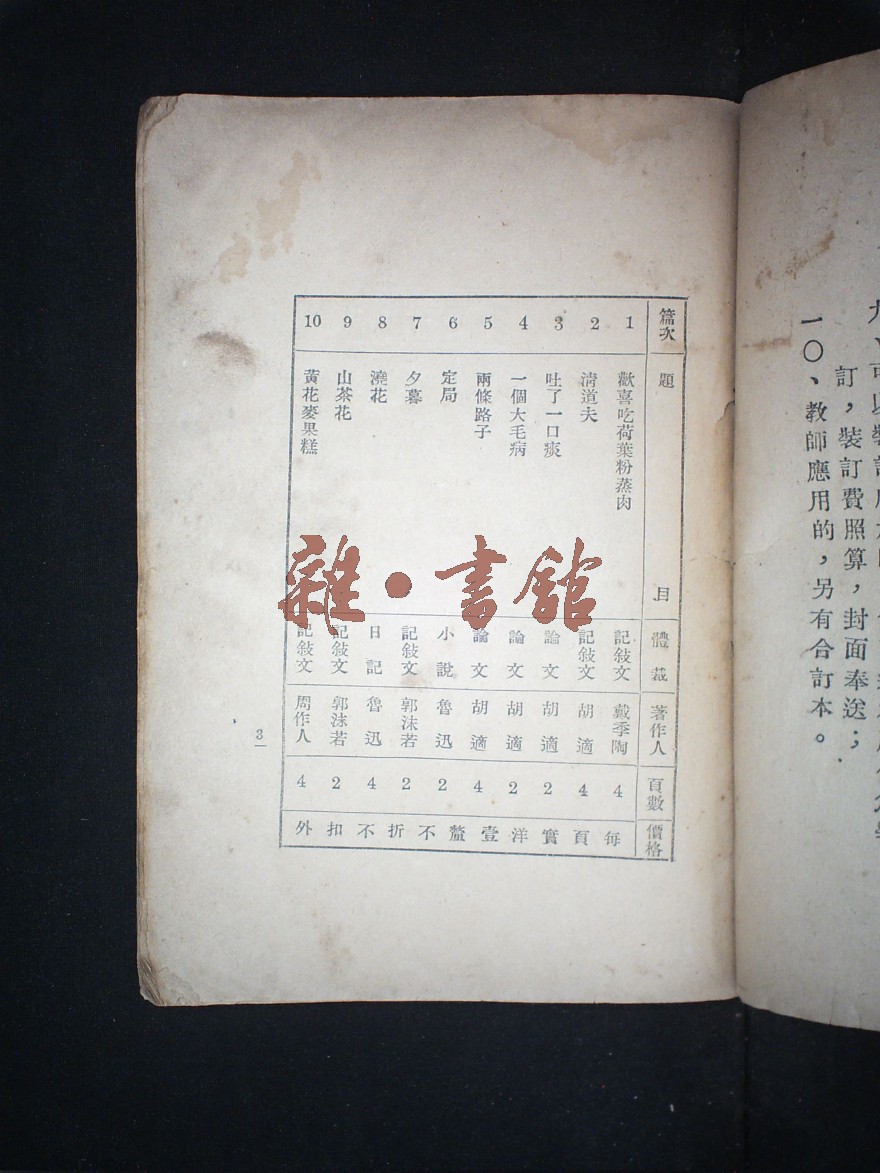 九、可以裝訂
訂，裝訂費照算，封面奉送；
一〇、教師應用的，另有合訂本。
篇次 題目 體裁 著作人 頁數 價格
1 歡喜吃荷葉粉蒸肉 記敍文 戴季陶 4
2 淸道夫 記敍文 胡適 4
3 吐了一口痰 論文 胡適 2
4 一個大毛病 論文 胡適 2
5 兩條路子 論文 胡適 4
6 定局 小說 魯迅 2
7 夕暮 記敍文 郭沫若 2
8 澆花 日記 魯迅 4
9 山茶花 記敍文 郭沫若 2
10 黃花麥果糕 記敍文 周作人 4
每頁實洋壹釐不折不扣外
3
雜·書館